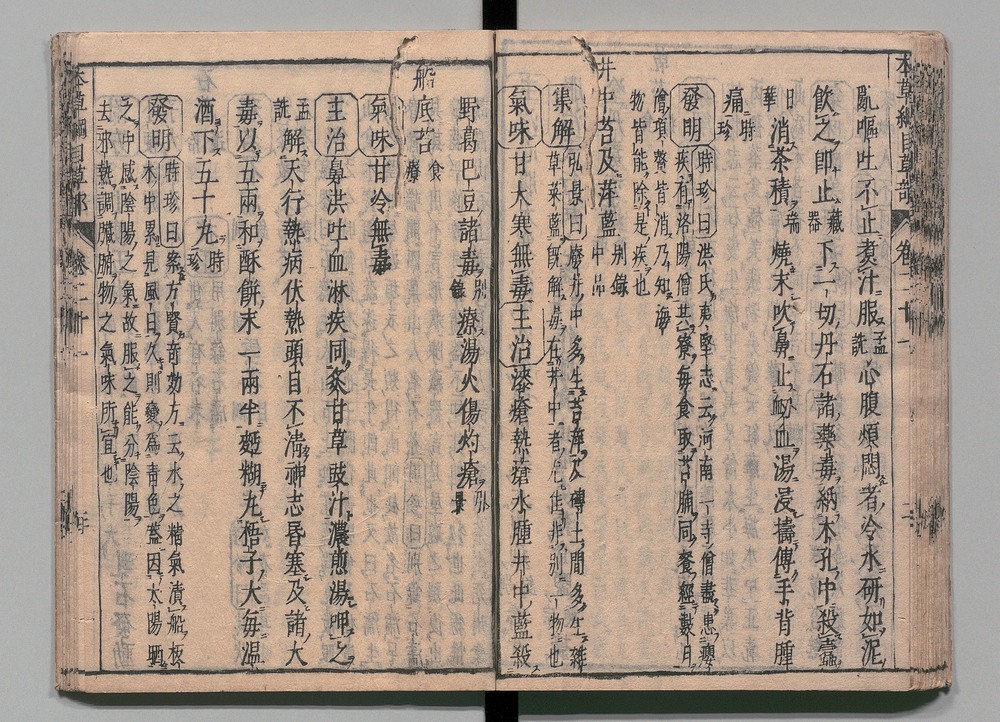 亂嘔吐不止煮汁服孟詵心腹煩悶者冷水研如泥
飲之即止藏器下一切丹石諸藥毒納木孔中殺蠹
日華消茶積瑞燒末吹鼻止衂血湯浸擣傅手背腫
痛時珍
發明時珍曰洪氏夷堅志云河南一寺僧盡患癭
疾有洛陽僧共寮每食取苔脯同餐經數月
僧項贅皆消乃知海
物皆能除是疾也
井中苔及萍藍別錄中品
集解弘景曰廢井中多生苔萍及磚土間多生雜
草菜藍既解毒在井中者尤佳非別一物也
氣味甘大寒無毒主治漆瘡熱瘡水腫井中藍殺
野葛巴豆諸毒別錄療湯火傷灼瘡弘景
船底苔食療
氣味甘冷無毒
主治鼻洪吐血淋疾同炙甘草豉汁濃煎湯呷之
孟詵解天行熱病伏熱頭目不清神志昏塞及諸大
毒以五兩和酥餅末一兩半麪糊丸梧子大每温
酒下五十丸時珍
發明時珍曰案方賢奇効方云水之精氣漬船板
木中累見風日久則變為青色蓋因太陽晒
之中感陰陽之氣故服之能分陰陽
去邪熱調臟腑物之氣味所宜也
本草綱目草部 卷二十一